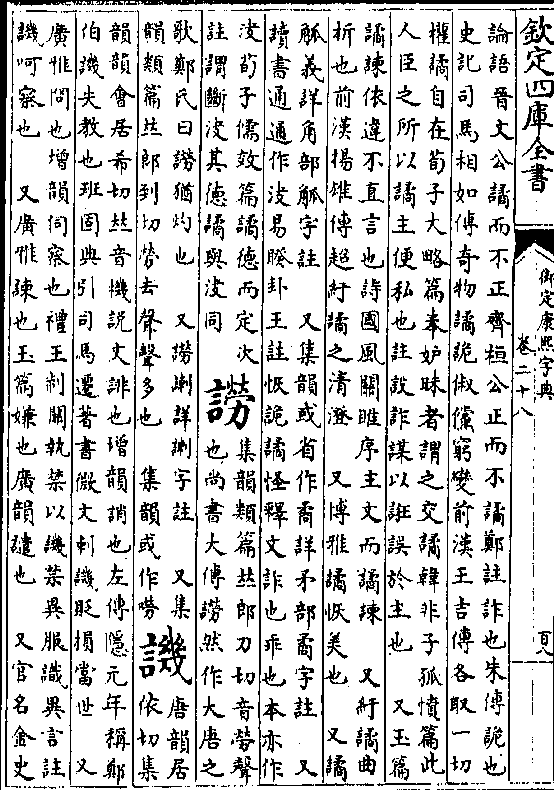 欽定四庫全書
御定康熙字典
卷二十八
百八
論語晉文公譎而不正齊桓公正而不譎鄭註詐也朱傳詭也
史記司馬相如傳奇物譎詭俶儻窮變前漢王吉傳各取一切
權譎自在荀子大略篇奉妒昧者謂之交譎韓非子孤憤篇此
人臣之所以譎主便私也註設詐謀以誑誤於主也 又玉篇
譎諫依違不直言也詩國風關雎序主文而譎諫 又紆譎曲
折也前漢揚雄傳超紆譎之清澄 又博雅譎恢美也 又譎
觚義詳角部觚字註 又集韻或省作矞詳矛部矞字註 又
讀書通通作決易睽卦王註恢詭譎怪釋文詐也乖也本亦作
決荀子儒效篇譎德而定次
註謂斷決其德譎與決同
䜎
集韻類篇𠀤郎刀切音勞聲
也尚書大傳䜎然作大唐之
歌鄭氏曰䜎猶灼也 又䜎謿詳謿字註 又集
韻類篇𠀤郎到切勞去聲聲多也 集韻或作嘮
譏
唐韻居
依切集
韻韻會居希切𠀤音機說文誹也增韻誚也左傳隱元年稱鄭
伯譏失教也班固典引司馬遷著書微文刺譏貶損當世 又
廣雅問也增韻伺察也禮王制關執禁以譏禁異服識異言註
譏呵察也 又廣雅諫也玉篇嫌也廣韻譴也 又官名金史